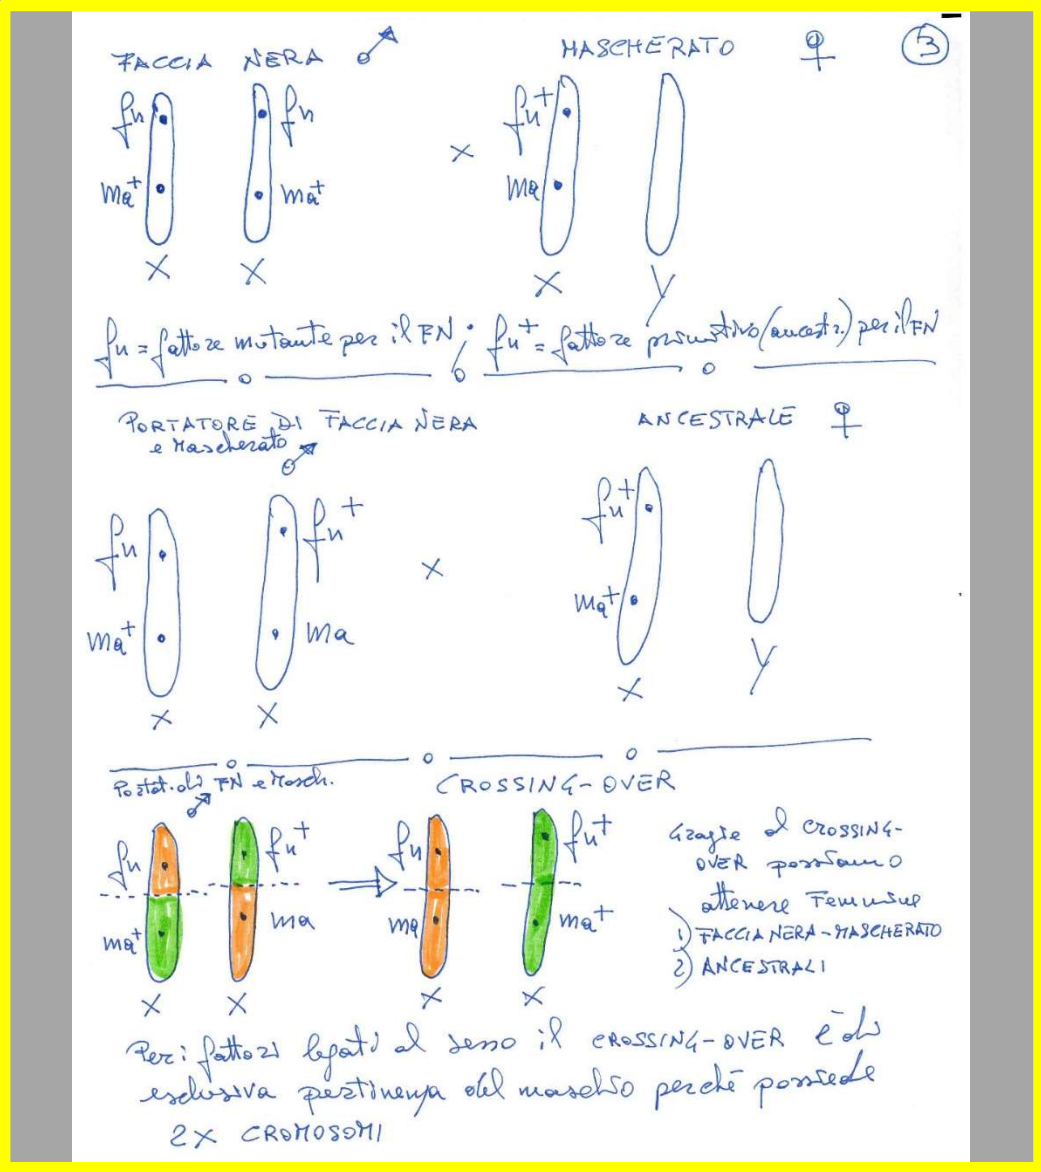 FACCIA NERA ♂ MASCHERATO ♀ 3
fn fn fn+
ma+ ma+ x ma
X X X Y
fn = fattore mutante per il FN; fn+ = fattore primitivo (ancestr.) per il FN
PORTATORE DI FACCIA NERA ANCESTRALE ♀
e Mascherato ♂
fn fn+ fn+
x
ma+ ma ma+
X X X Y
Portat. di FN e Masch. CROSSING-OVER
♂
fn fn+ fn fn+ Grazie al CROSSING-
OVER possiamo
ottenere Femmine
ma+ ma ma ma+ 1) FACCIA NERA-MASCHERATO
2) ANCESTRALI
X X X X
Per i fattori legati al sesso il CROSSING-OVER è di
esclusiva pertinenza del maschio perché possiede
2X CROMOSOMI